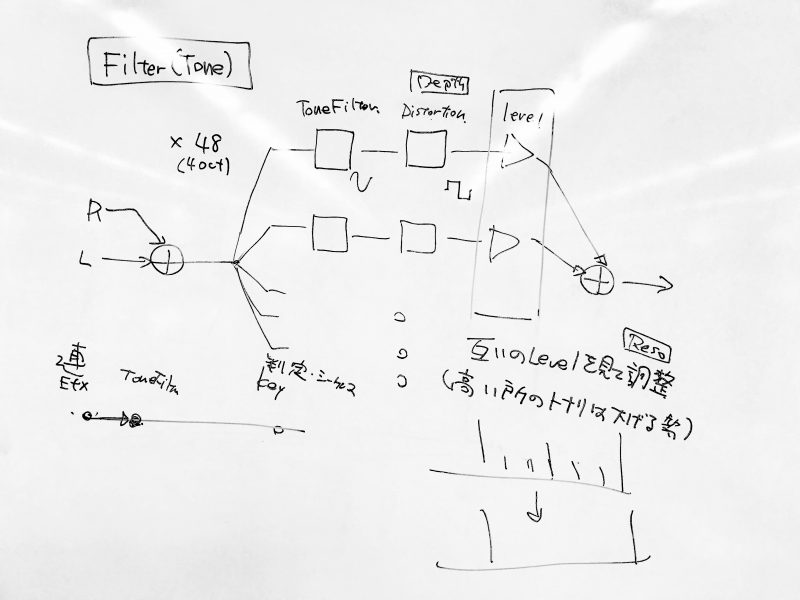 Filter (Tone)
Depth
ToneFilter
Distortion
level
× 48
(4oct)
R
L
互いのLevelを見て調整
Reso
(高い所のトナリは下げる等)
2連
Efx
ToneFilter
判定・シーケンス
Key